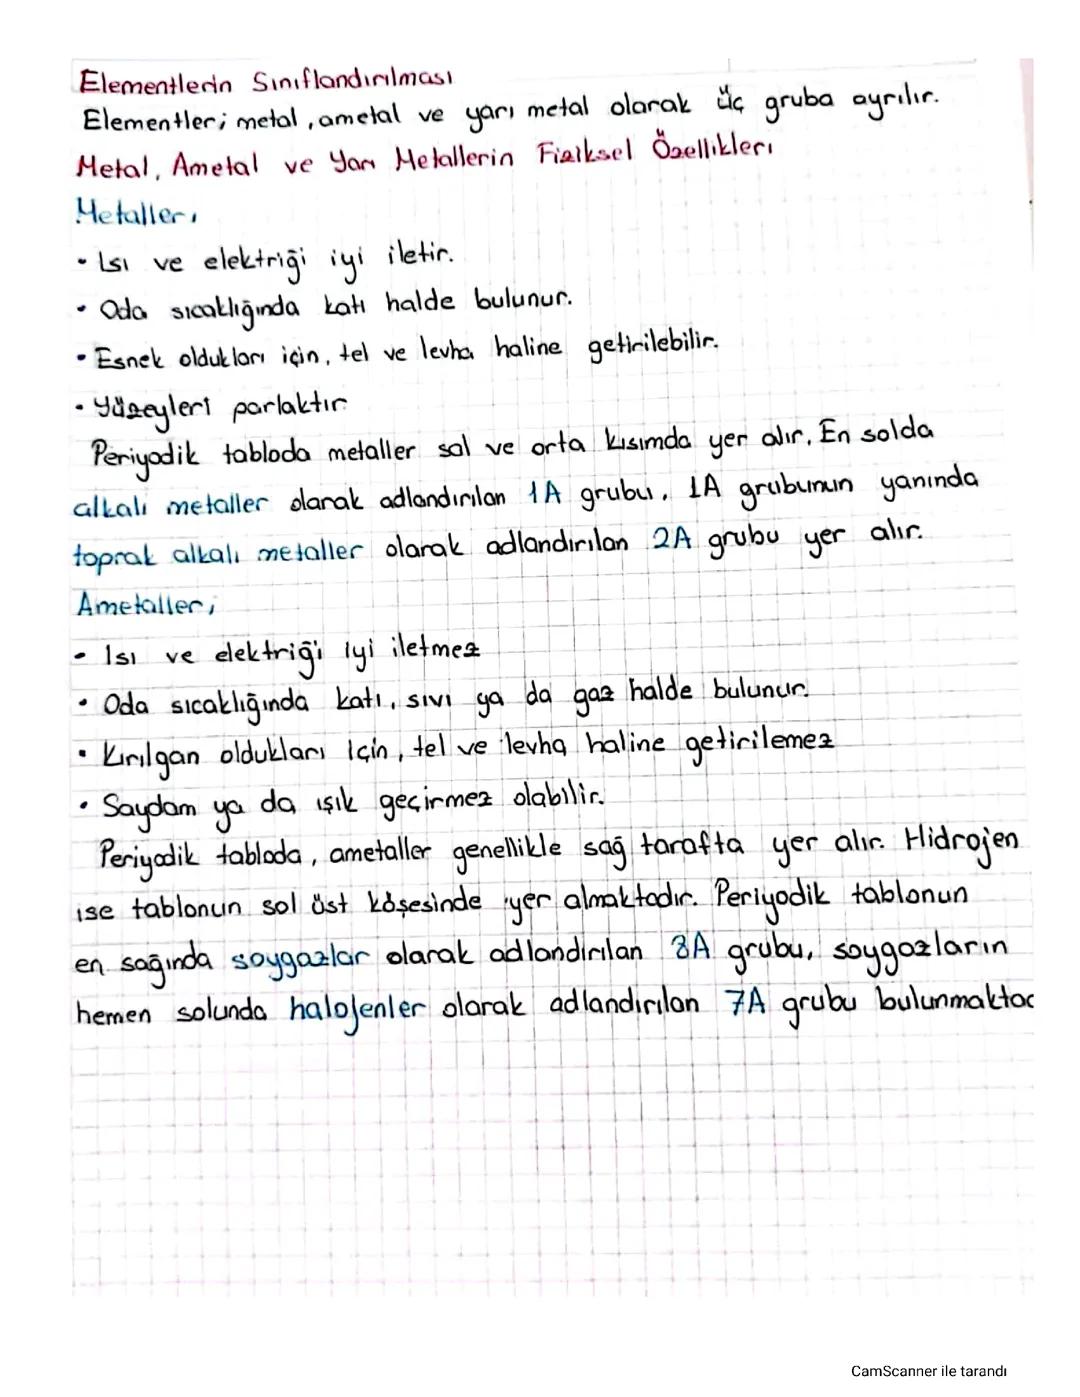 Elementlerin Sınıflandırılması
Elementler; metal, ametal ve yarı metal olarak üç gruba ayrılır.
Metal, Ametal ve Yarı Metallerin Fiziksel Özellikleri
Metaller;
• Isı ve elektriği iyi iletir.
• Oda sıcaklığında katı halde bulunur.
• Esnek oldukları için, tel ve levha haline getirilebilir.
• Yüzeyleri parlaktır
Periyodik tabloda metaller sol ve orta kısımda yer alır. En solda
alkali metaller olarak adlandırılan 1A grubu, 1A grubunun yanında
toprak alkali metaller olarak adlandırılan 2A grubu yer alır.
Ametaller;
• Isı ve elektriği iyi iletmez
• Oda sıcaklığında katı, sıvı ya da gaz halde bulunur.
• Kırılgan oldukları için, tel ve levha haline getirilemez
• Saydam ya da ışık geçirmez olabilir.
Periyodik tabloda, ametaller genellikle sağ tarafta yer alır. Hidrojen
ise tablonun sol üst köşesinde yer almaktadır. Periyodik tablonun
en sağında soygazlar olarak adlandırılan 8A grubu, soygazların
hemen solunda halojenler olarak adlandırılan 7A grubu bulunmaktad
CamScanner ile tarandı